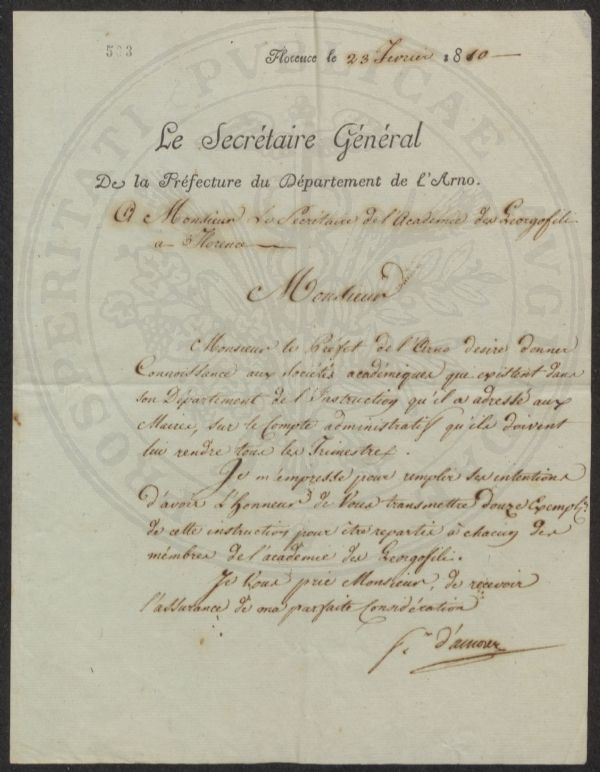 503
Florence le 23 Fevrier 1810
Le Secrétaire Général
De la Préfecture du Département de l'Arno.
A Monsieur Le Secrétaire de l'Académie des Georgofili
a Florence
Monsieur
Monsieur le Préfet de l'Arno desire donner
Connoissance aux sociétés académiques qui existent dans
son Département de l'Instruction qu'il a adressé aux
Maires, sur le Compte administratif qu'ils doivent
lui rendre tous les Trimestres.
Je m'empresse pour remplir ses intentions
d'avoir l'Honneur de Vous transmettre douze Exempl.
de cette instruction pour être repartis à chacun des
mémbres de l'academie des Georgofili.
Je Vous prie Monsieur, de recevoir
l'assurance de ma parfaite Considération
PROSPERITATI PVBLICAE